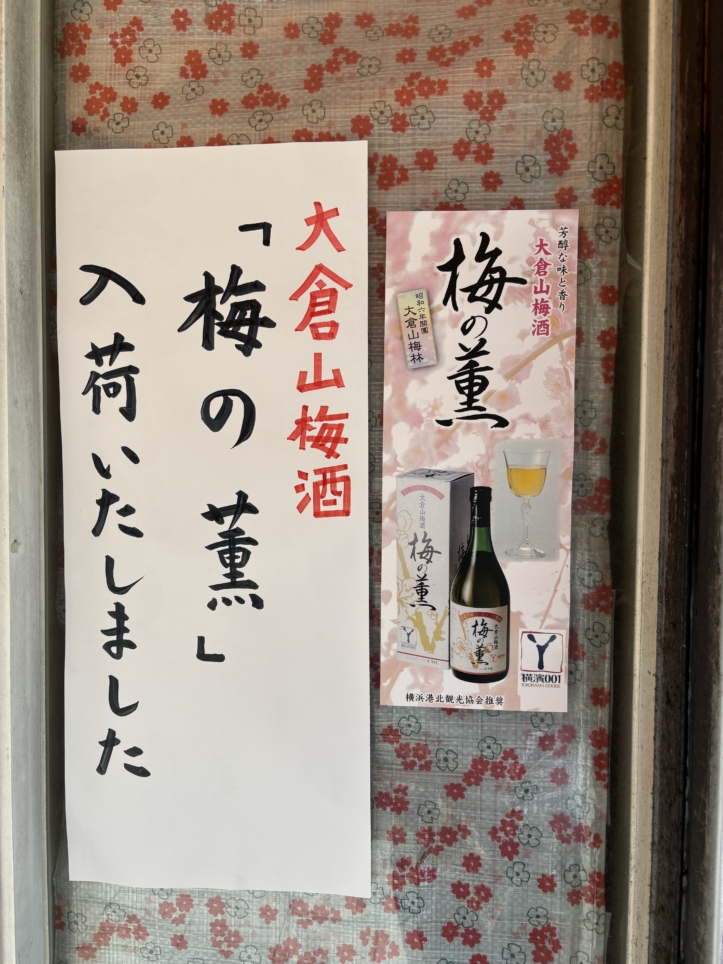 大倉山梅酒
「梅の薫」
入荷いたしました
芳醇な味と香り
大倉山梅酒
梅の薫
昭和六年開園
大倉山梅林
大倉山梅酒
梅の薫
大倉山梅酒
梅の薫
横濱001
YOKOHAMA GOODS
横浜港北観光協会推奨